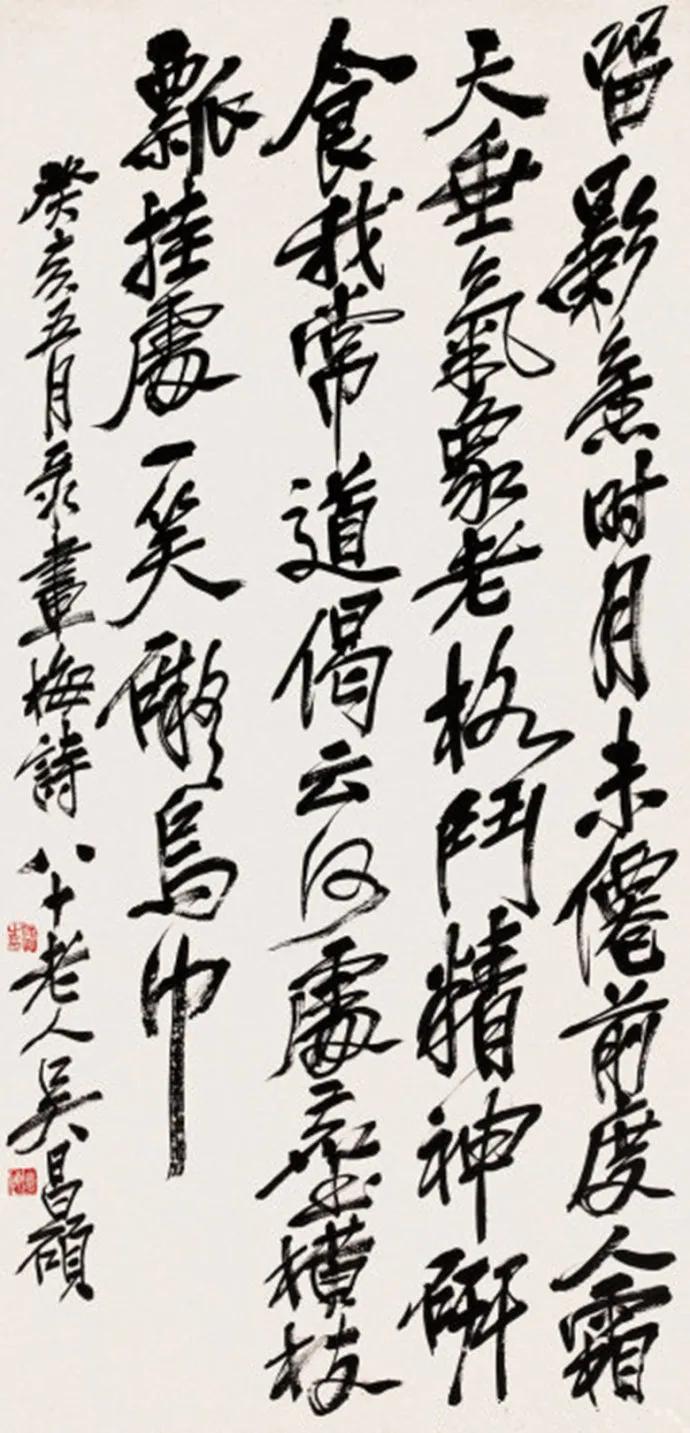 留影时月未僊前度人霜
天垂氣象老格鬥精神研
食我常道偈云何處塵橫枝
瓢挂處一笑烏巾
癸亥五月录畫梅詩 八十老人吳昌碩